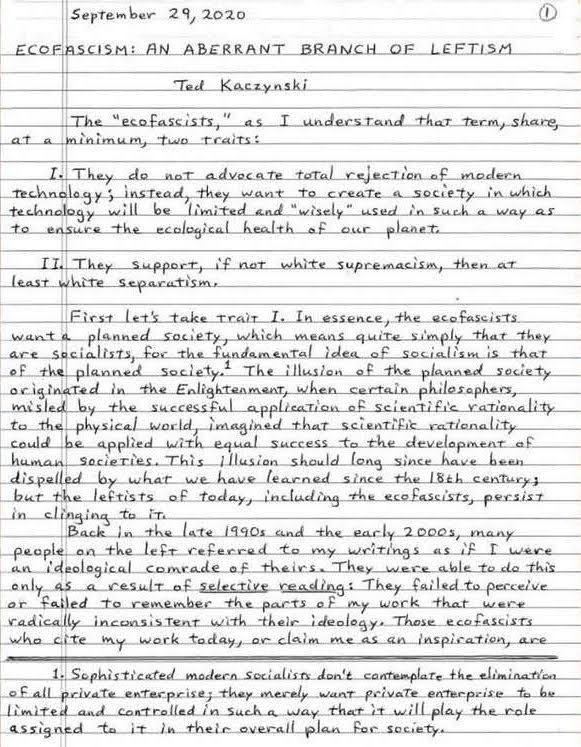 September 29, 2020
1
ECOFASCISM: AN ABERRANT BRANCH OF LEFTISM
Ted Kaczynski
The "ecofascists," as I understand that term, share,
at a minimum, two traits:
I. They do not advocate total rejection of modern
technology; instead, they want to create a society in which
technology will be limited and "wisely" used in such a way as
to ensure the ecological health of our planet.
II. They support, if not white supremacism, then at
least white separatism.
First let's take trait I. In essence, the ecofascists
want a planned society, which means quite simply that they
are socialists, for the fundamental idea of socialism is that
of the planned society.1 The illusion of the planned society
originated in the Enlightenment, when certain philosophers,
misled by the successful application of scientific rationality
to the physical world, imagined that scientific rationality
could be applied with equal success to the development of
human societies. This illusion should long since have been
dispelled by what we have learned since the 18th century;
but the leftists of today, including the ecofascists, persist
in clinging to it.
Back in the late 1990s and the early 2000s, many
people on the left referred to my writings as if I were
an ideological comrade of theirs. They were able to do this
only as a result of selective reading: They failed to perceive
or failed to remember the parts of my work that were
radically inconsistent with their ideology. Those ecofascists
who cite my work today, or claim me as an inspiration, are
1. Sophisticated modern socialists don't contemplate the elimination
of all private enterprise; they merely want private enterprise to be
limited and controlled in such a way that it will play the role
assigned to it in their overall plan for society.